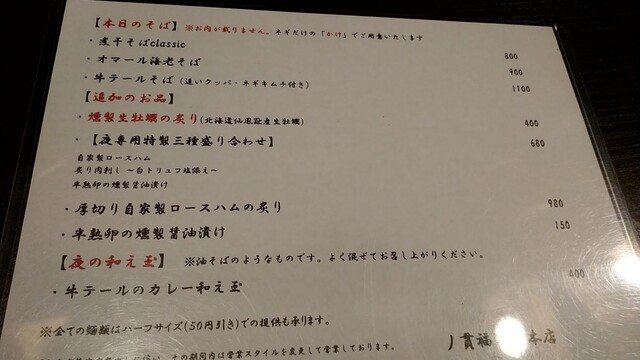 【本日のそば】 ※お肉が載りません。ネギだけの「かけ」でご用意いたします
・煮干そばclassic 800
・オマール海老そば 900
・牛テールそば (追いクッパ・ネギキムチ付き) 1100
【追加のお品】
・燻製生牡蠣の炙り(北海道仙鳳趾産生牡蠣) 400
・【夜専用特製三種盛り合わせ】 680
自家製ロースハム
炙り肉刺し ～白トリュフ塩添え～
半熟卵の燻製醤油漬け
・厚切り自家製ロースハムの炙り 980
・半熟卵の燻製醤油漬け 150
【夜の和え玉】 ※油そばのようなものです。よく混ぜてお召し上がりください。
・牛テールのカレー和え玉 400
※全ての麺類はハーフサイズ(50円引き)での提供も承ります。
その期間内は営業スタイルを変更して営業しております。
丿貫福 本店